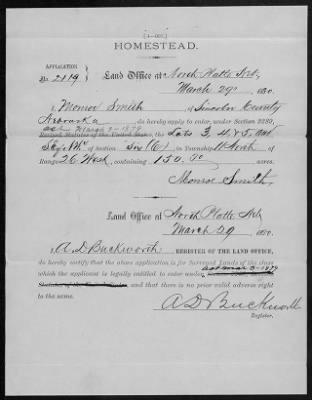 [4—007.]
HOMESTEAD.
APPLICATION
No. 2119
Land Office at North Platte Neb,
March 29, 1880.
I, Monroe Smith of Lincoln County
Nebraska do hereby apply to enter, under Section 2289,
act March 3-1879
Revised Statutes of the United States, the Lots 3, 4 & 5, and
of Section Six (6) in Township 11 North of
Range 26 West, containing 150. acres.
Monroe Smith
Land Office at North Platte Neb
March 29, 1880.
I, A. D. Buckworth, REGISTER OF THE LAND OFFICE,
do hereby certify that the above application is for Surveyed Lands of the class
which the applicant is legally entitled to enter under act mar 3-1879
Statutes of the United States, and that there is no prior valid adverse right
to the same.
A D Buckworth
Register.